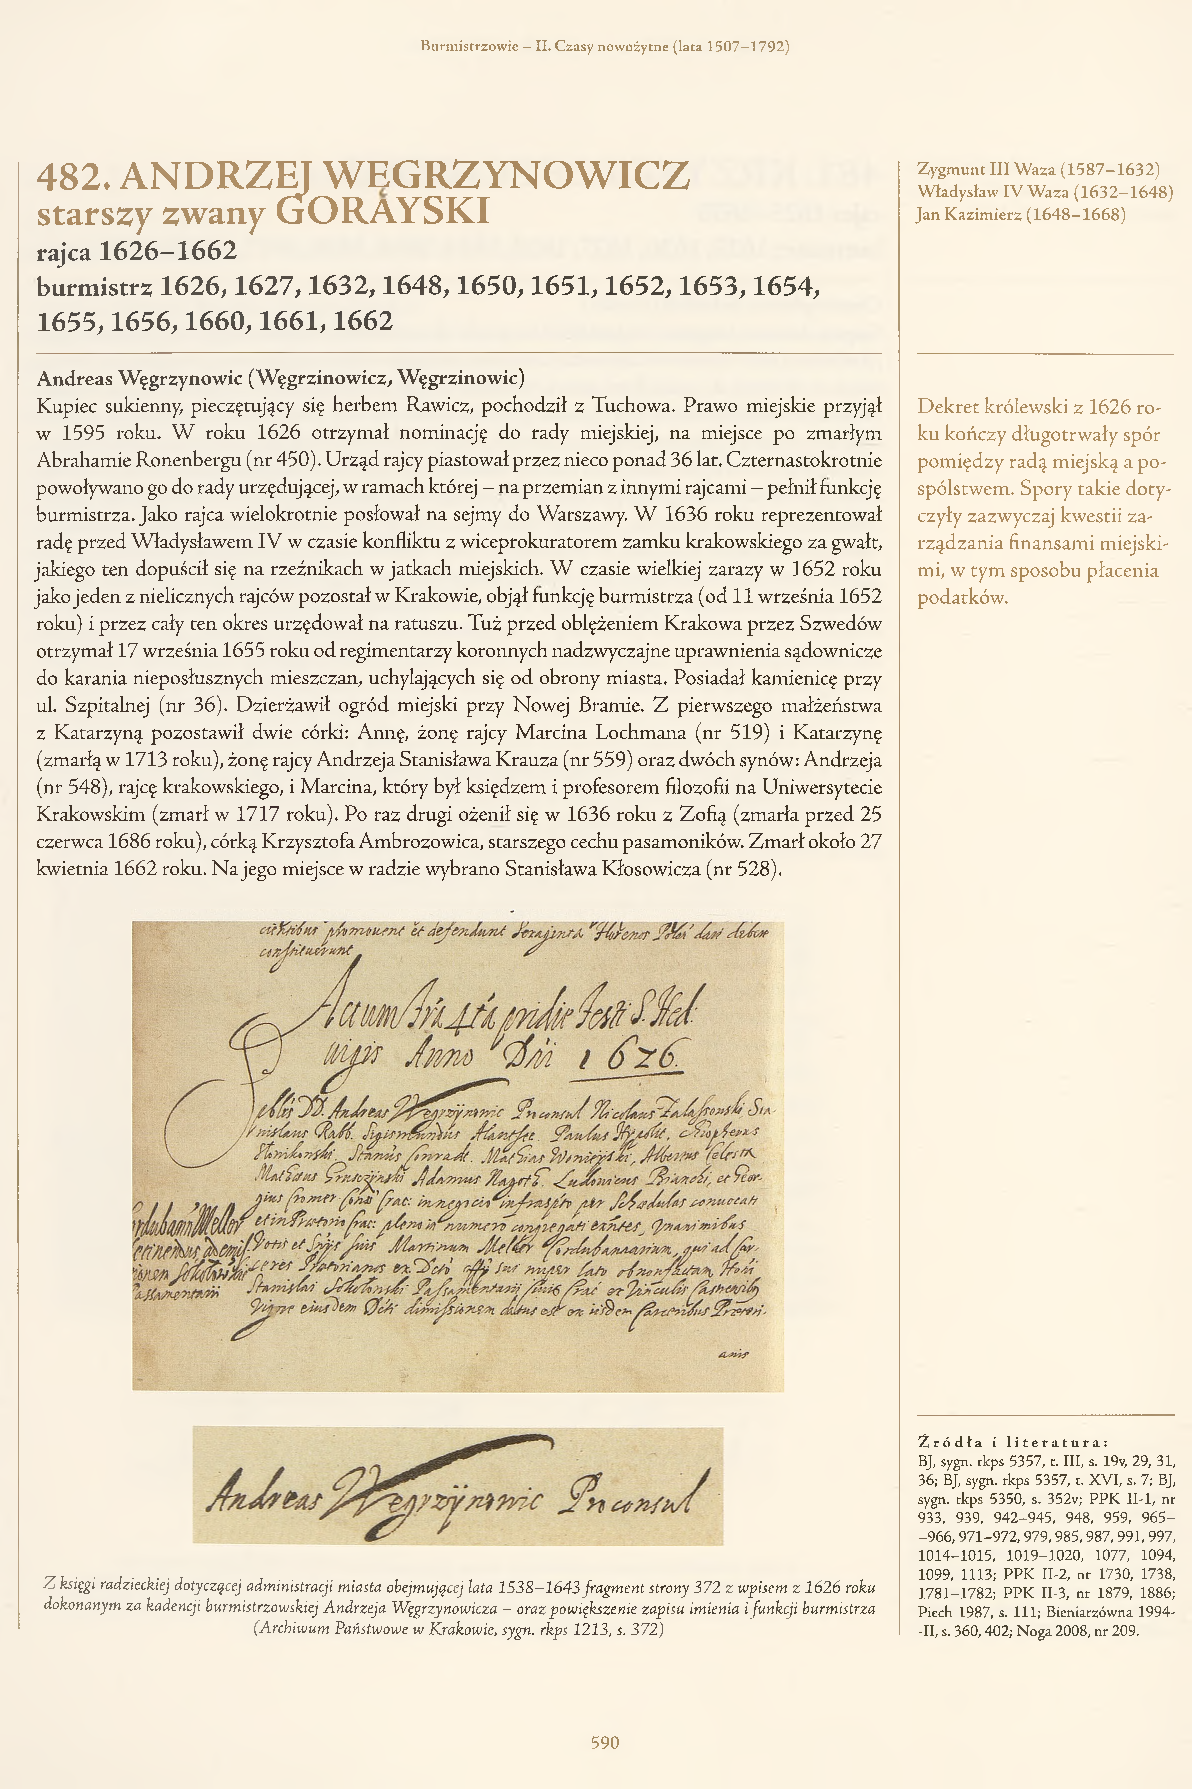 Burmistrzowie – II. Czasy nowożytne (lata 1507–1792)
482. ANDRZEJ WĘGRZYNOWICZ
starszy zwany GORAYSKI
rajca 1626–1662
burmistrz 1626, 1627, 1632, 1648, 1650, 1651, 1652, 1653, 1654,
1655, 1656, 1660, 1661, 1662
Zygmunt III Waza (1587–1632)
Władysław IV Waza (1632–1648)
Jan Kazimierz (1648–1668)
Andreas Węgrzynowic (Węgrzinowicz, Węgrzinowic)
Kupiec sukienny, pieczętujący się herbem Rawicz, pochodził z Tuchowa. Prawo miejskie przyjął
w 1595 roku. W roku 1626 otrzymał nominację do rady miejskiej, na miejsce po zmarłym
Abrahamie Ronenbergu (nr 450). Urząd rajcy piastował przez nieco ponad 36 lat. Czternastokrotnie
powoływano go do rady urzędującej, w ramach której – na przemian z innymi rajcami – pełnił funkcję
burmistrza. Jako rajca wielokrotnie posłował na sejmy do Warszawy. W 1636 roku reprezentował
radę przed Władysławem IV w czasie konfliktu z wiceprokuratorem zamku krakowskiego za gwałt,
jakiego ten dopuścił się na rzeźnikach w jatkach miejskich. W czasie wielkiej zarazy w 1652 roku
jako jeden z nielicznych rajców pozostał w Krakowie, objął funkcję burmistrza (od 11 września 1652
roku) i przez cały ten okres urzędował na ratuszu. Tuż przed oblężeniem Krakowa przez Szwedów
otrzymał 17 września 1655 roku od regimentarzy koronnych nadzwyczajne uprawnienia sądownicze
do karania nieposłusznych mieszczan, uchylających się od obrony miasta. Posiadał kamienicę przy
ul. Szpitalnej (nr 36). Dzierżawił ogród miejski przy Nowej Bramie. Z pierwszego małżeństwa
z Katarzyną pozostawił dwie córki: Annę, żonę rajcy Marcina Lochmana (nr 519) i Katarzynę
(zmarłą w 1713 roku), żonę rajcy Andrzeja Stanisława Krauza (nr 559) oraz dwóch synów: Andrzeja
(nr 548), rajcę krakowskiego, i Marcina, który był księdzem i profesorem filozofii na Uniwersytecie
Krakowskim (zmarł w 1717 roku). Po raz drugi ożenił się w 1636 roku z Zofią (zmarła przed 25
czerwca 1686 roku), córką Krzysztofa Ambrozowica, starszego cechu pasamoników. Zmarł około 27
kwietnia 1662 roku. Na jego miejsce w radzie wybrano Stanisława Kłosowicza (nr 528).
Dekret królewski z 1626 ro-
ku kończy długotrwały spór
pomiędzy radą miejską a po-
spólstwem. Spory takie doty-
czyły zazwyczaj kwestii za-
rządzania finansami miejski-
mi, w tym sposobu płacenia
podatków.
promouent et defendunt Sexaginta Florenos dari debere
constituerunt
Actum fria 4ta pridie festi S. Hed
uigis Anno Dni 1626.
DD. Andreas Węgrzÿnowic Proconsul Nicolaus Zalassowski Sta-
nislaus Sigismundus Alantsee Paulus
Adamus Ludovicus et Geor-
gius in negocio infrascripto per Schedulas conuocati
pleno in numero congregati Vnanimibus
Votis et suis Martinum Meller Cordubanarium, qui ad Car-
ceres Pretorianos ex nuper lato
Stanislai Sokołowski
dimissionem datus est ex Carceribus Pretori-
anis
Andreas Węgrzÿnowic Proconsul
Z księgi radzieckiej dotyczącej administracji miasta obejmującej lata 1538–1643 fragment strony 372 z wpisem z 1626 roku
dokonanym za kadencji burmistrzowskiej Andrzeja Węgrzynowicza – oraz powiększenie zapisu imienia i funkcji burmistrza
(Archiwum Państwowe w Krakowie, sygn. rkps 1213, s. 372)
Źródła i literatura:
BJ, sygn. rkps 5357, t. III, s. 19v, 29, 31,
36; BJ, sygn. rkps 5357, t. XVI, s. 7; BJ,
sygn. rkps 5350, s. 352v; PPK II-1, nr
933, 939, 942–945, 948, 959, 965–
–966, 971–972, 979, 985, 987, 991, 997,
1014–1015, 1019–1020, 1077, 1094,
1099, 1113; PPK II-2, nr 1730, 1738,
1781–1782; PPK II-3, nr 1879, 1886;
Piech 1987, s. 111; Bieniarzówna 1994-
-II, s. 360, 402; Noga 2008, nr 209.
590